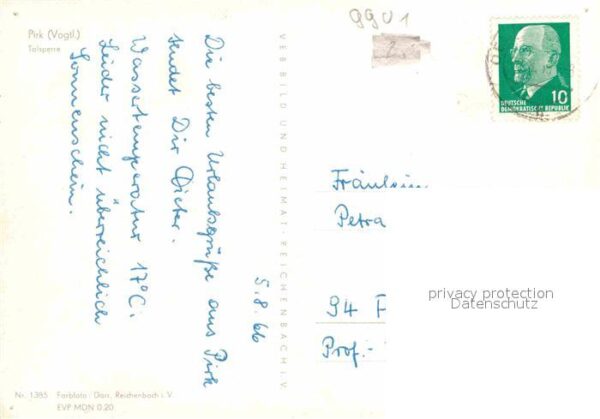 Pirk (Vogtl.)
Talsperre
9901
Die besten Urlaubsgrüße aus Pirk
sendet Dir Dieter.
Wassertemperatur 17°C.
Leider nicht überreichlich
Sonnenschein.
5.8.66
VEB BILD UND HEIMAT · REICHENBACH I. V.
10
DEUTSCHE
DEMOKRATISCHE REPUBLIK
Fräulein
Petra
94 F
Prof.-
privacy protection
Datenschutz
Nr. 1385 Farbfoto: Darr, Reichenbach i. V.
EVP MDN 0.20